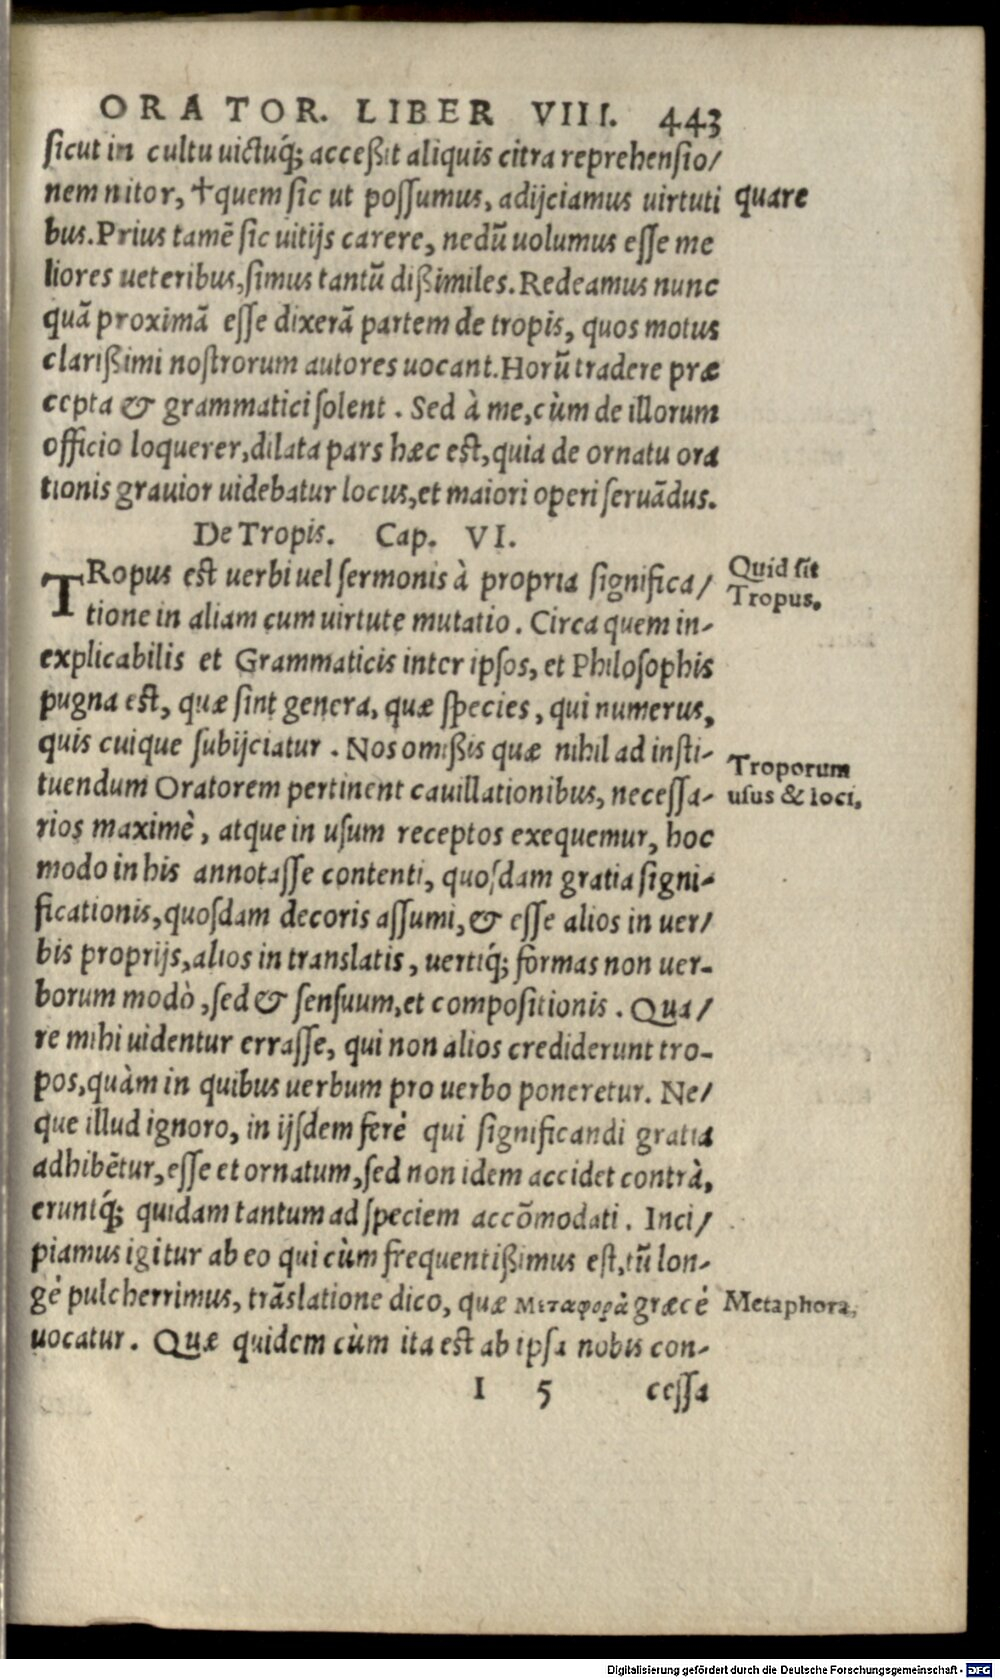 ORATOR. LIBER VIII. 443
sicut in cultu uictuq́; acceßit aliquis citra reprehensio/
nem nitor, ✝quem sic ut possumus, adijciamus uirtuti quare
bus. Prius tamẽ sic uitijs carere, nedũ uolumus esse me
liores ueteribus, simus tantũ dißimiles. Redeamus nunc
quã proximã esse dixerã partem de tropis, quos motus
clarißimi nostrorum autores uocant. Horũ tradere præ
cepta & grammatici solent. Sed à me, cùm de illorum
officio loquerer, dilata pars hæc est, quia de ornatu ora
tionis grauior uidebatur locus, et maiori operi seruãdus.
De Tropis. Cap. VI.
TRopus est uerbi uel sermonis à propria significa/
Quid sit
Tropus.
tione in aliam cum uirtute mutatio. Circa quem in-
explicabilis et Grammaticis inter ipsos, et Philosophis
pugna est, quæ sint genera, quæ species, qui numerus,
quis cuique subijciatur. Nos omißis quæ nihil ad insti-
Troporum
usus & loci.
tuendum Oratorem pertinent cauillationibus, necessa-
rios maximè, atque in usum receptos exequemur, hoc
modo in his annotasse contenti, quosdam gratia signi-
ficationis, quosdam decoris assumi, & esse alios in uer/
bis proprijs, alios in translatis, uertiq́; formas non uer-
borum modò, sed & sensuum, et compositionis. Qua/
re mihi uidentur errasse, qui non alios crediderunt tro-
pos, quàm in quibus uerbum pro uerbo poneretur. Ne/
que illud ignoro, in ijsdem ferè qui significandi gratia
adhibẽtur, esse et ornatum, sed non idem accidet contrà,
eruntq́; quidam tantum ad speciem accõmodati. Inci/
piamus igitur ab eo qui cùm frequentißimus est, tũ lon-
gè pulcherrimus, trãslatione dico, quæ Μεταφορὰ græcè
Metaphora.
uocatur. Quæ quidem cùm ita est ab ipsa nobis con-
I 5 cessa
Digitalisierung gefördert durch die Deutsche Forschungsgemeinschaft - DFG